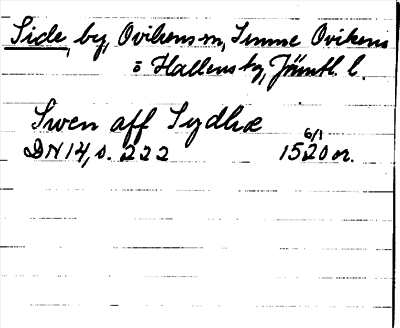 Side, by, Ovikens sn, Simme Ovikens
o Hallens kg, Jämtl. l.
Swen aff Sydhæ
DN 14, s. 222 6/1 1520 or.